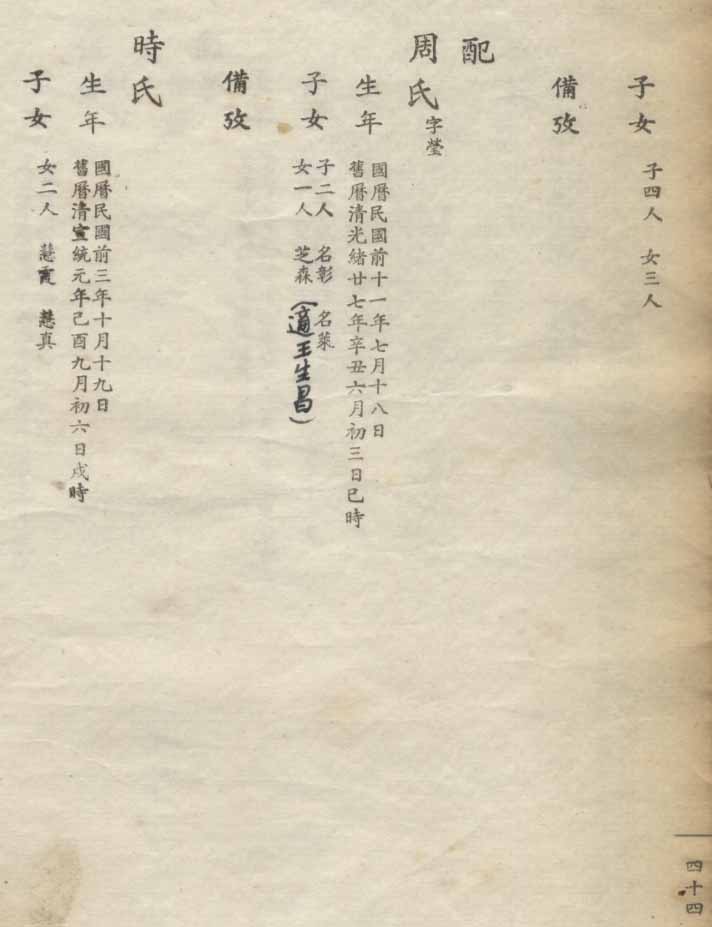 子女 子四人 女三人
備攷
配
周氏 字瑩
生年 國曆民國前十一年七月十八日
舊曆清光緒廿七年辛丑六月初三日巳時
子女 子二人 名彰 名蕖
女一人 芝森(適王生昌)
備攷
時氏
生年 國曆民國前三年十月十九日
舊曆清宣統元年己酉九月初六日戌時
子女 女二人 慧霞 慧真
四十四